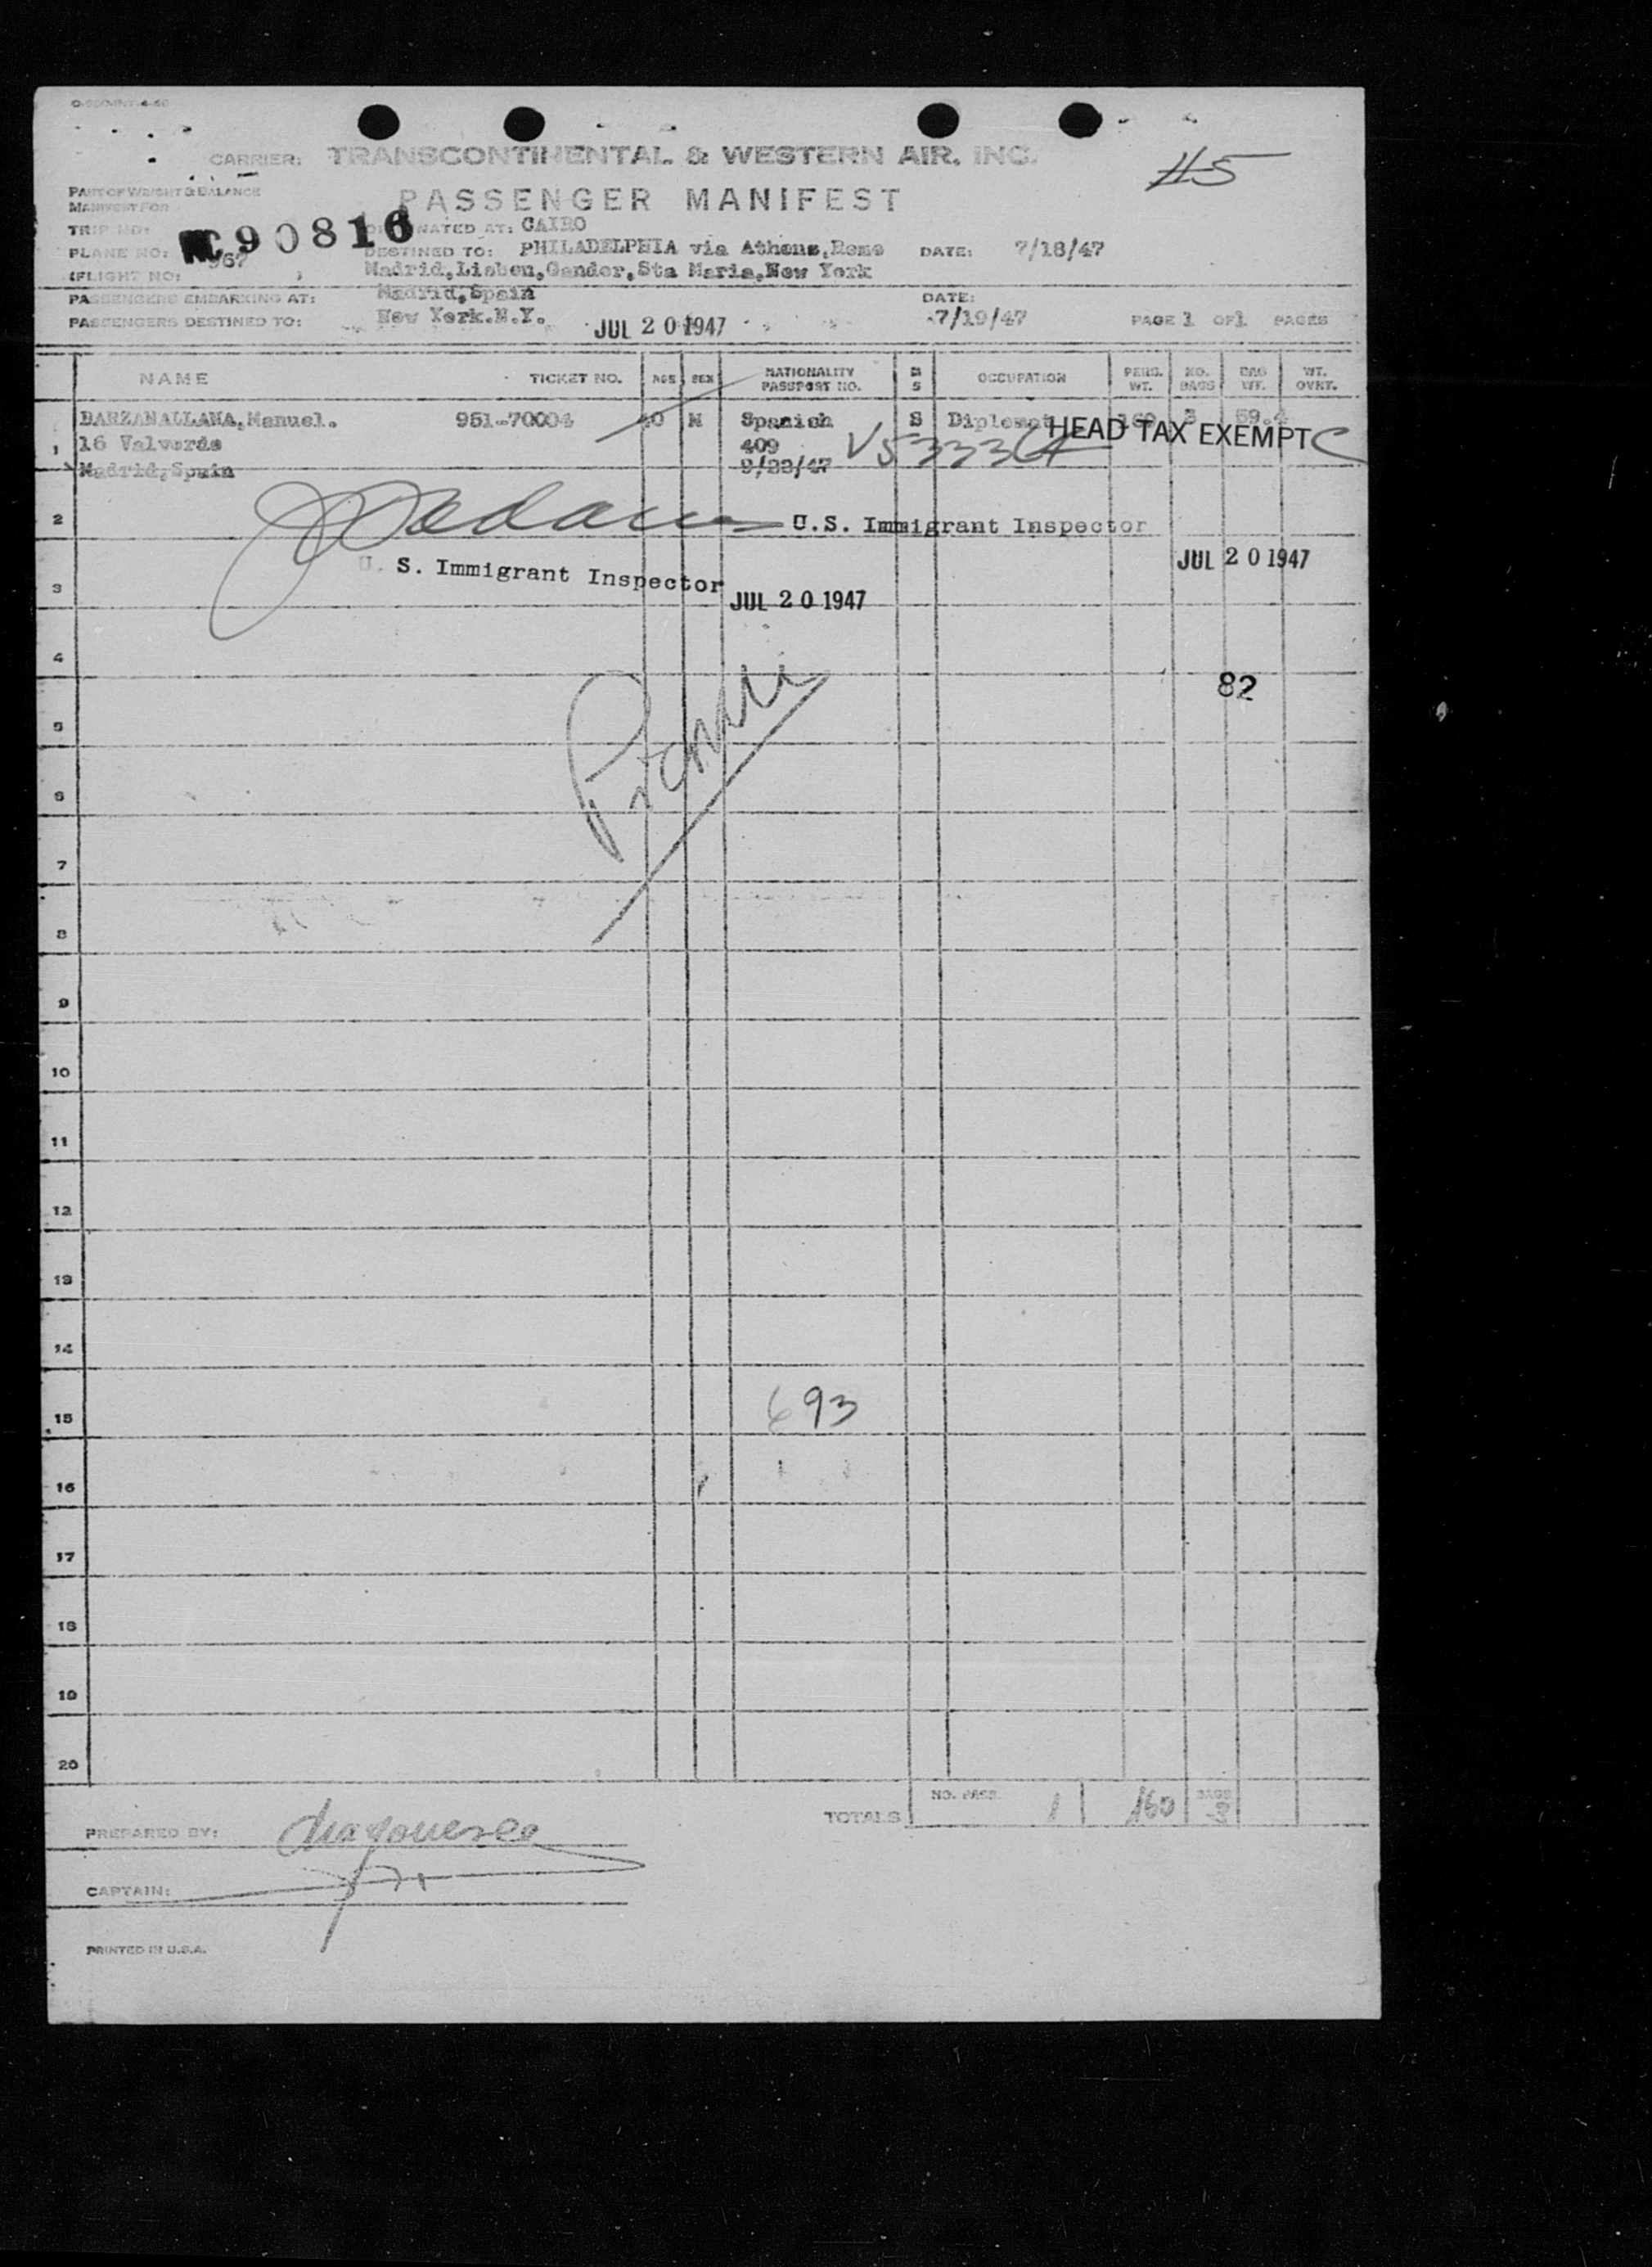 CARRIER: TRANSCONTINENTAL & WESTERN AIR, INC.
#5
PART OF WEIGHT & BALANCE
MANIFEST FOR
PASSENGER MANIFEST
TRIP NO:
NC90816
ORIGINATED AT: CAIRO
PLANE NO: 967
DESTINED TO: PHILADELPHIA via Athens,Rome
DATE: 7/18/47
(FLIGHT NO: )
Madrid,Lisbon,Gander,Sta Maria,New York
PASSENGERS EMBARKING AT: Madrid,Spain
DATE:
PASSENGERS DESTINED TO: New York.N.Y.
JUL 20 1947
7/19/47
PAGE 1 OF 1 PAGES
NAME TICKET NO. AGE SEX NATIONALITY PASSPORT NO. M S OCCUPATION PERS. WT. NO. BAGS BAG WT. WT. OVRT.
1 BARZANALLANA,Manuel. 951-70004 40 M Spanish S Diplomat 160 3 59.4
HEAD TAX EXEMPT
16 Valverde 409
Madrid,Spain 9/23/47
2 U.S. Immigrant Inspector
JUL 20 1947
U. S. Immigrant Inspector
3 JUL 20 1947
4
82
5
6
7
8
9
10
11
12
13
14
693
15
16
17
18
19
20
TOTALS NO. PASS. 1 160 BAGS 3
PREPARED BY:
CAPTAIN:
PRINTED IN U.S.A.